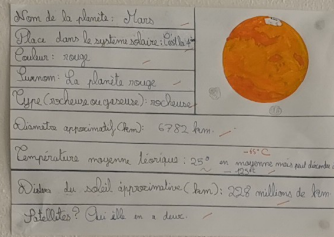 Nom de la planète: Mars
Place dans le système solaire: C'est la 4e
Couleur: rouge
Surnom: La planète rouge
Type (rocheuse ou gazeuse): rocheuse
Diamètre approximatif (km): 6782 km.
-63°C
Température moyenne téorique: 25° en moyenne mais peut descendre
Distance du soleil approximative (km): 228 millions de km
Satellites? Oui elle en a deux.